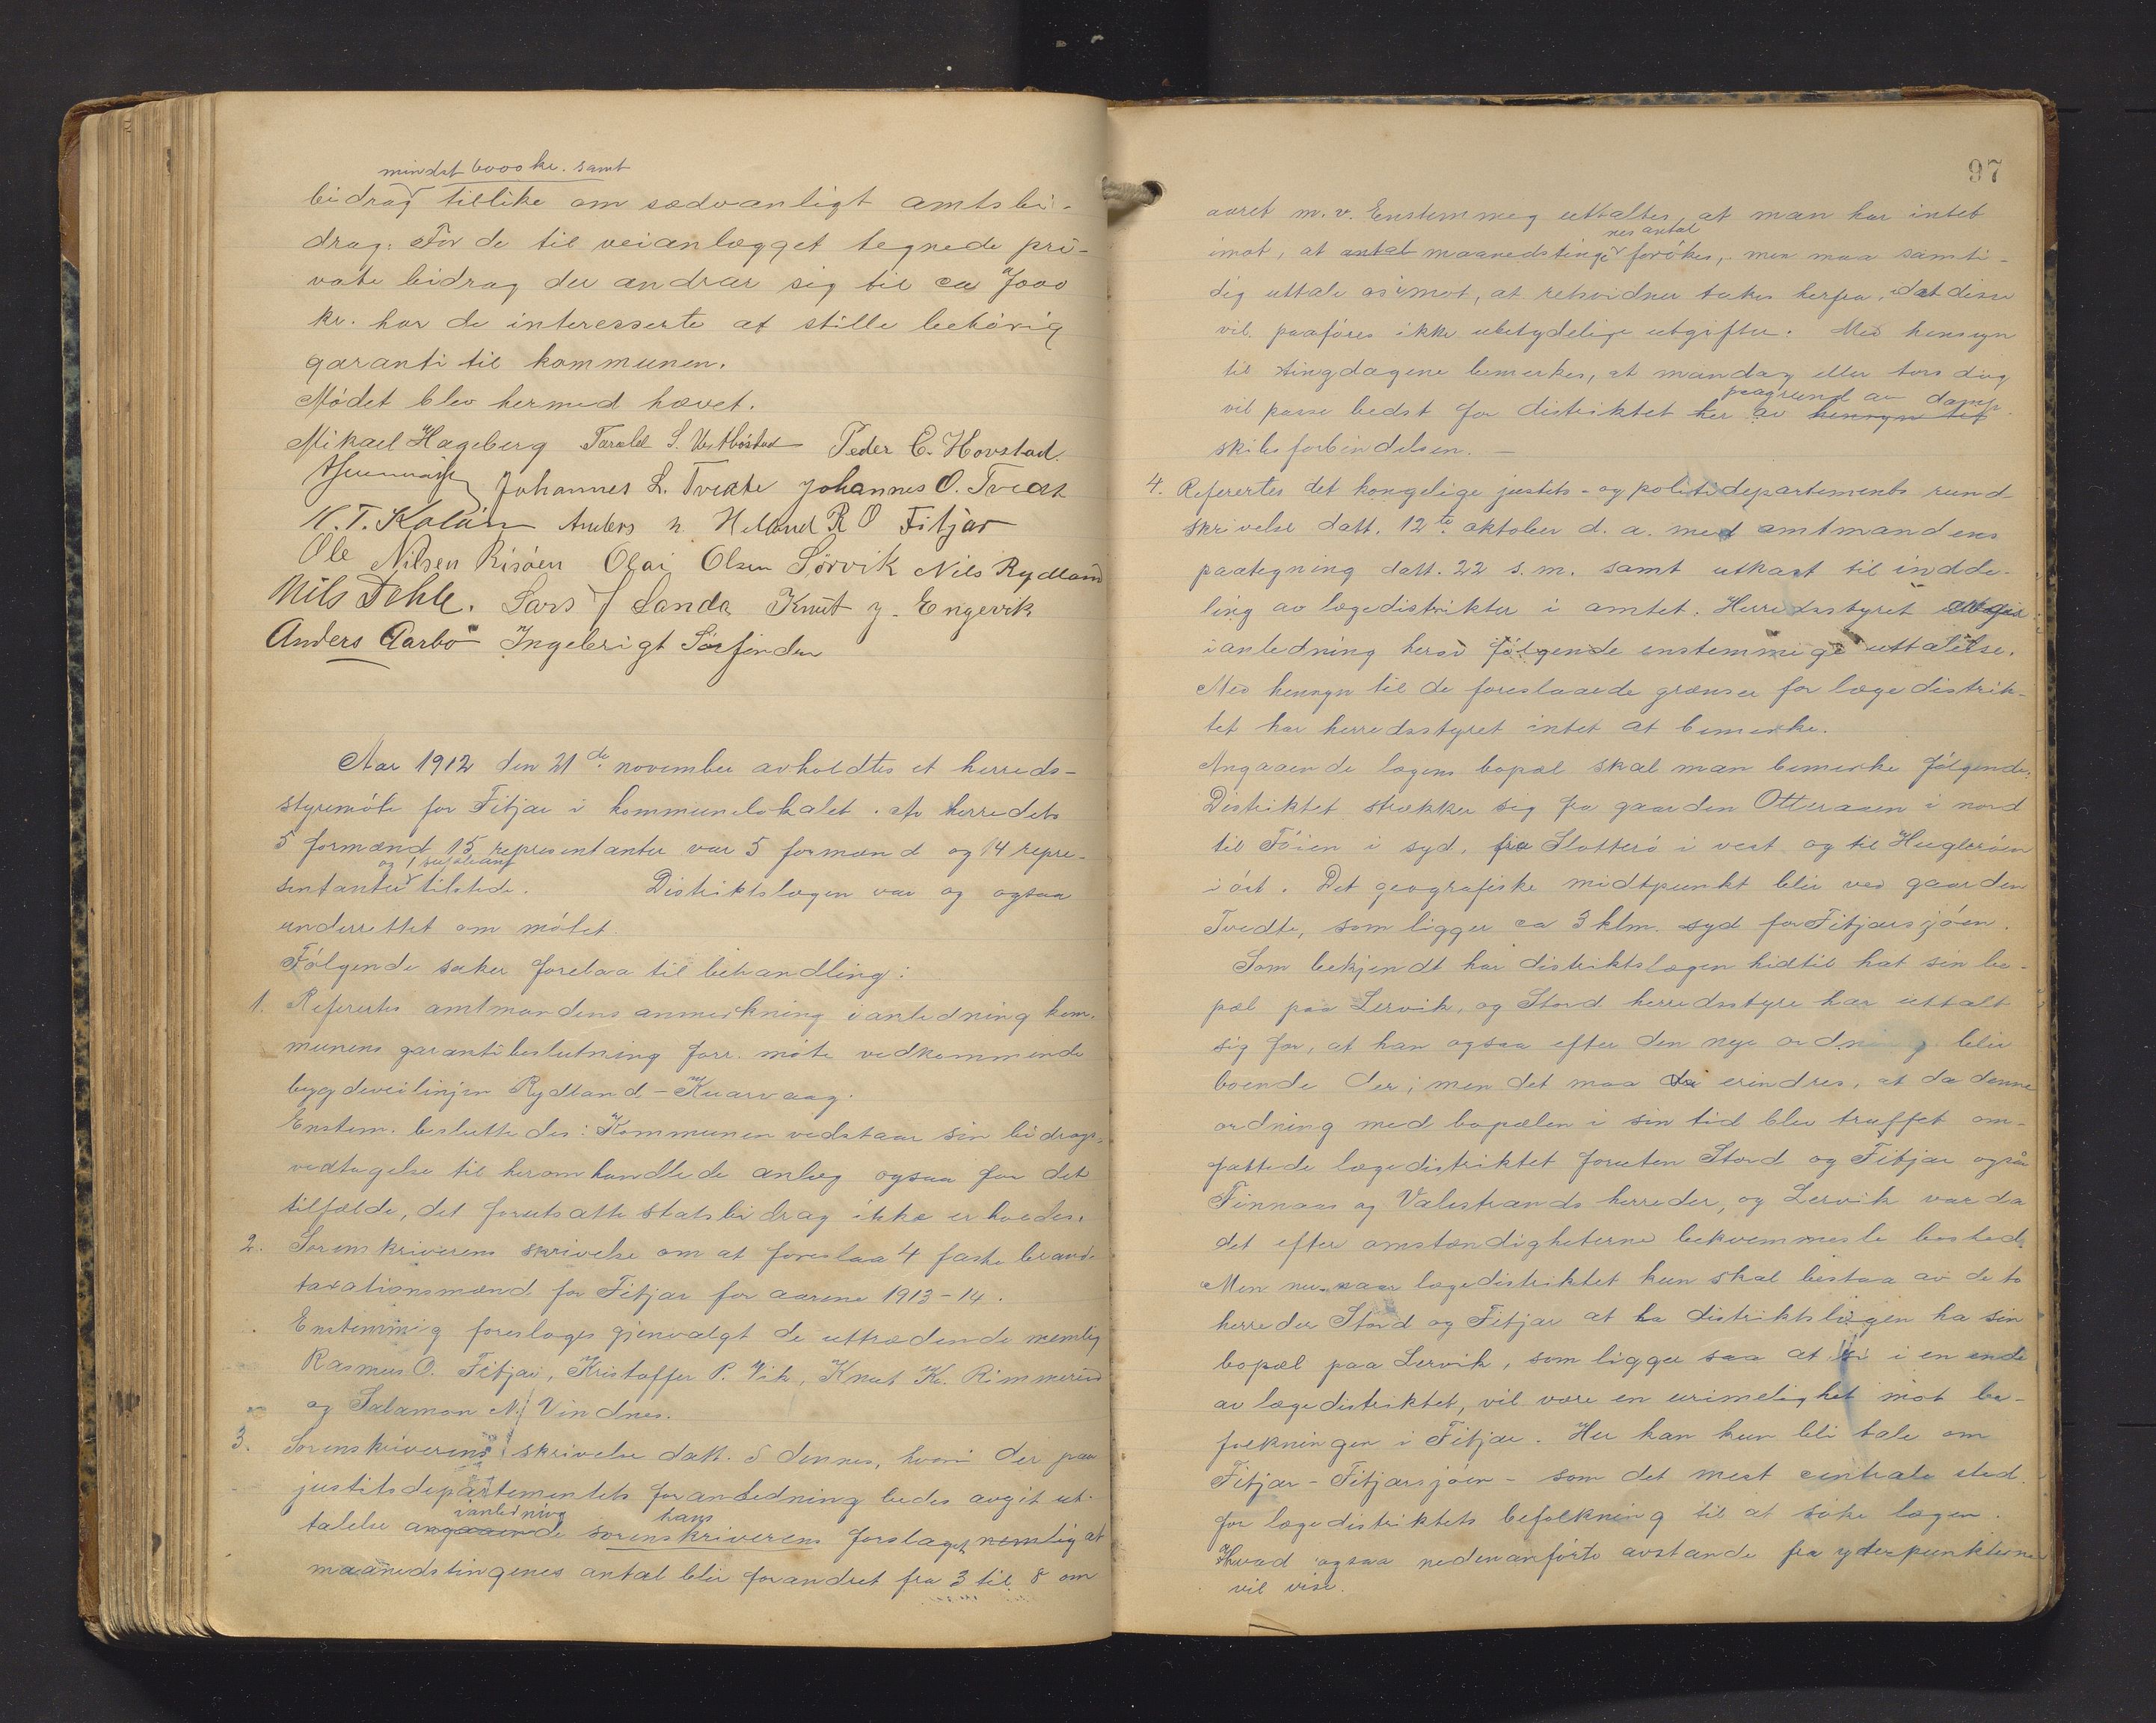 mindst 6000 kr. samt
bidrag tillike om sædvanligt amtsbi-
drag. For de til veianlægget tegnede pri-
vate bidrag der andrar sig til ca 7000
kr. har de interesserte at stille behørig
garanti til kommunen.
Mødet blev hermed hævet.
Mikael Hageberg Tarald S. Vestbøstad Peder C. Hovstad.
Johannes L. Tveite Johannes O. Tveit
N. T. Koløen Anders N. Heland R O Fitjar
Ole Nilsen Risøen Olai Olsen Sørvik Nils Rydland
Nils Dehle. Lars J Landa Knut J. Engevik
Anders Aarbø Ingebrigt Sørfinden
Aar 1912 den 21de november avholdtes et herreds-
styremøte for Fitjar i kommunelokalet. Av herredets
5 formænd 15 representanter var 5 formænd og 14 repre-
og 1 supleant
sentanter tilstede. Distriktslægen var og ogsaa
underrettet om møtet.
Følgende saker forelaa til behandling:
1. Refertes amtmandens anmerkning i anledning kom-
munens garantibeslutning forr. møte vedkommende
bygdeveilinjen Rydland - Kvarvaag.
Enstem. besluttedes: Kommunen vedstaar sin bidrags-
vedtagelse til heromhandlede anlæg ogsaa for det
tilfælde, det forutsatte statsbidrag ikke erholdes.
2. Sorenskriverens skrivelse om at foreslaa 4 faste brand-
taxationsmænd for Fitjar for aarene 1913-14.
Enstemmig foreslages gjenvalgt de uttrædende nemlig
Rasmus O. Fitjar, Kristoffer P. Vik, Knut K. Rimmereid
og Salamon N. Vindnes.
3. Sorenskriverens skrivelse datt. 8 dennes, hvori der paa
justitsdepartementets foranledning bedes avgit ut-
ianledning hans
talelse angaaende sorenskriverens forslaget nemlig at
maanedstingenes antal blir forandret fra 3 til 8 om
97
aaret m. v. Enstemmig uttaltes, at man har intet
nes antal
imot, at antal maanedstinge forøkes, men maa samti-
dig uttale asimot, at retsvidner takes herfra, da disse
vil paaføres ikke ubetydelige utgifter. Med hensyn
til tingdagene bemerkes, at mandag eller torsdag
paagrund av damp-
vil passe bedst for distriktet her av hensyn til
skibsforbindelsen. -
4. Refertes det kongelige justits- og politidepartements rund-
skrivelse datt. 12te oktober d. a. med amtmandens
paategning datt. 22 s. m. samt utkast til indde-
ling av lægedistrikter i amtet. Herredsstyret avgir
i anledning herav følgende enstemmige uttalelse.
Med hensyn til de foreslaaede grænser for lægedistrik-
tet har herredsstyret intet at bemerke.
Angaaende lægens bopæl skal man bemerke følgende:
Distriktet strækker sig fra gaarden Otteraaen i nord
til Føien i syd, fra Slotterø i vest og til Huglerøen
i øst. Det geografiske midtpunkt blir ved gaarden
Tvedte, som ligger ca 3 klm. syd for Fitjarsjøen.
Som bekjendt har distriktslægen hidtil hat sin bo-
pæl paa Lervik, og Stord herredsstyre har uttalt
sig for, at han ogsaa efter den nye ordning blir
boende der; men det maa da erindres, at da denne
ordning med bopælen i sin tid blev truffet om-
fattede lægedistriktet foruten Stord og Fitjar også
Finnaas og Valestrands herreder, og Lervik var da
det efter omstændigheterne bekvemmeste bosted.
Men nu, naar lægedistriktet kun skal bestaa av de to
herreder Stord og Fitjar at la distriktslægen ha sin
bopæl paa Lervik, som ligger saa at si i en ende
av lægedistriktet, vil være en urimelighet mot be-
folkningen i Fitjar. Her kan kun bli tale om
Fitjar - Fitjarsjøen - som det mest centrale sted
for lægedistriktets befolkning til at søke lægen.
Hvad ogsaa nedenanførte avstande fra yderpunkterne
vil vise.